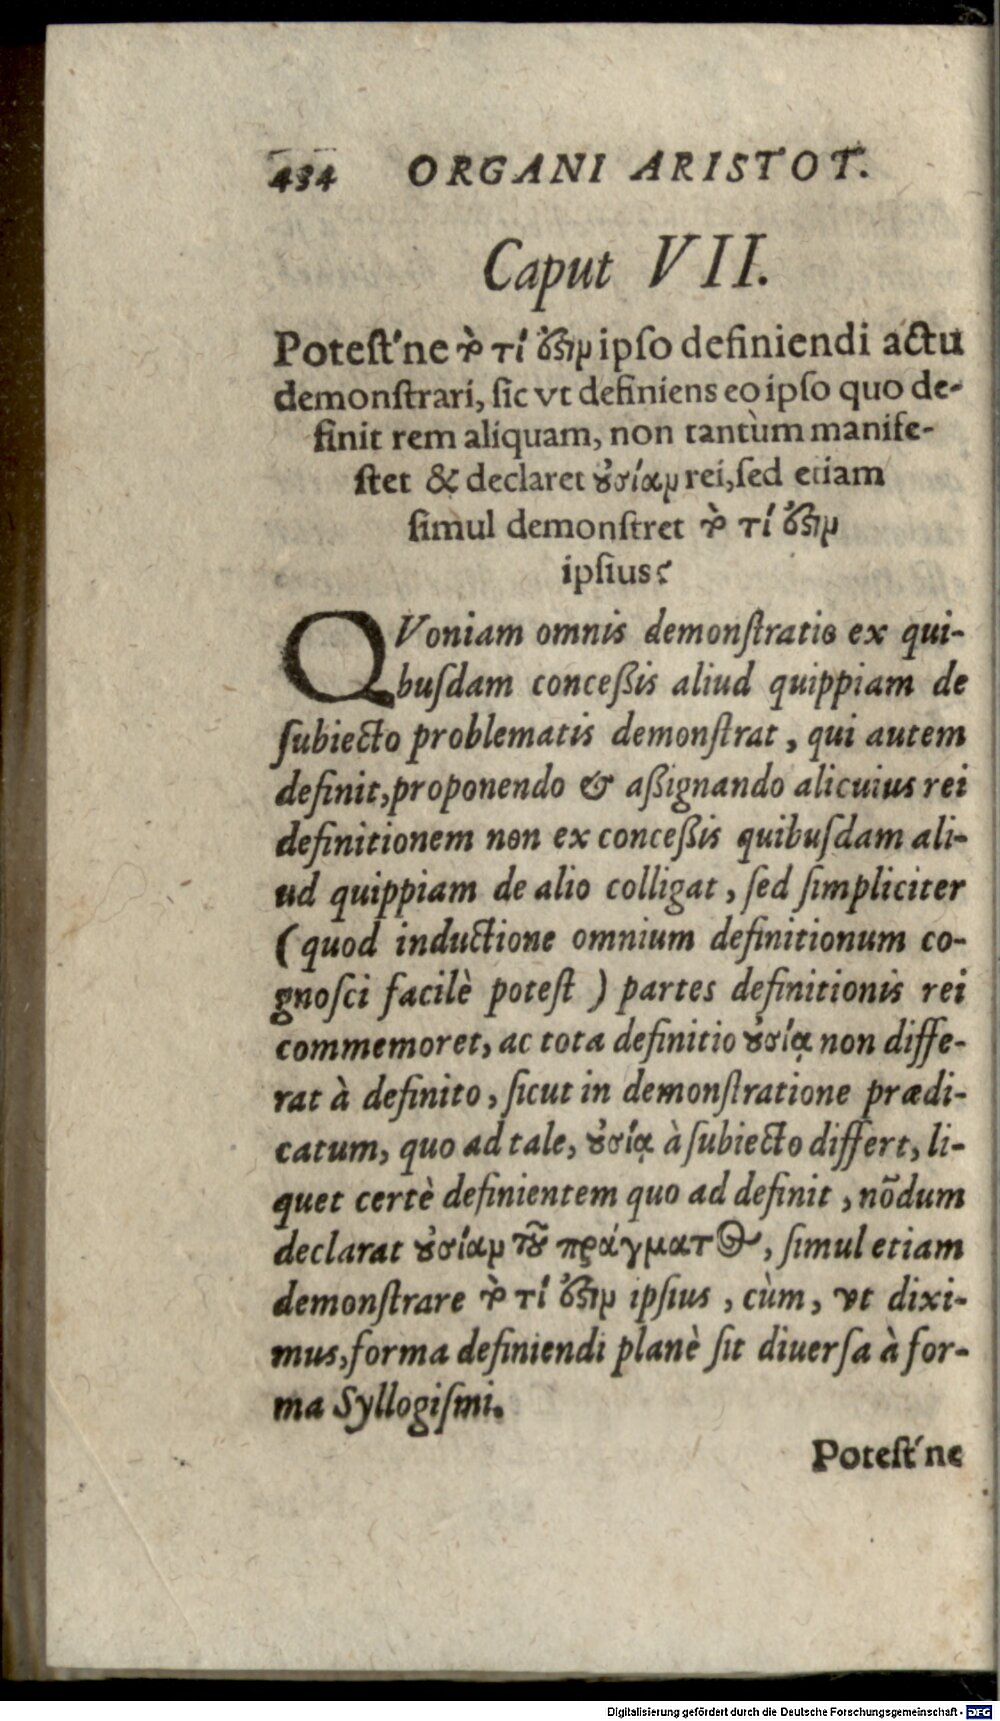 434 ORGANI ARISTOT.
Caput VII.
Potest'ne τὸ τί ἐστιν ipso definiendi actu
demonſtrari, ſic vt definiens eo ipſo quo de-
finit rem aliquam, non tantùm manife-
ſtet & declaret οὐσίαν rei, ſed etiam
ſimul demonſtret τὸ τί ἐστιν
ipſius?
QVoniam omnis demonſtratio ex qui-
buſdam conceßis aliud quippiam de
ſubiecto problematis demonſtrat, qui autem
definit, proponendo & aßignando alicuius rei
definitionem non ex conceßis quibuſdam ali-
ud quippiam de alio colligat, ſed ſimpliciter
(quod inductione omnium definitionum co-
gnoſci facilè poteſt) partes definitionis rei
commemoret, ac tota definitio οὐσίᾳ non diffe-
rat à definito, ſicut in demonſtratione prædi-
catum, quo ad tale, οὐσίᾳ à ſubiecto differt, li-
quet certè definientem quo ad definit, nõdum
declarat οὐσίαν τοῦ πράγματος, ſimul etiam
demonſtrare τὸ τί ἐστιν ipſius, cùm, vt dixi-
mus, forma definiendi planè ſit diuerſa à for-
ma Syllogiſmi.
Poteſt'ne
Digitalisierung gefördert durch die Deutsche Forschungsgemeinschaft - DFG